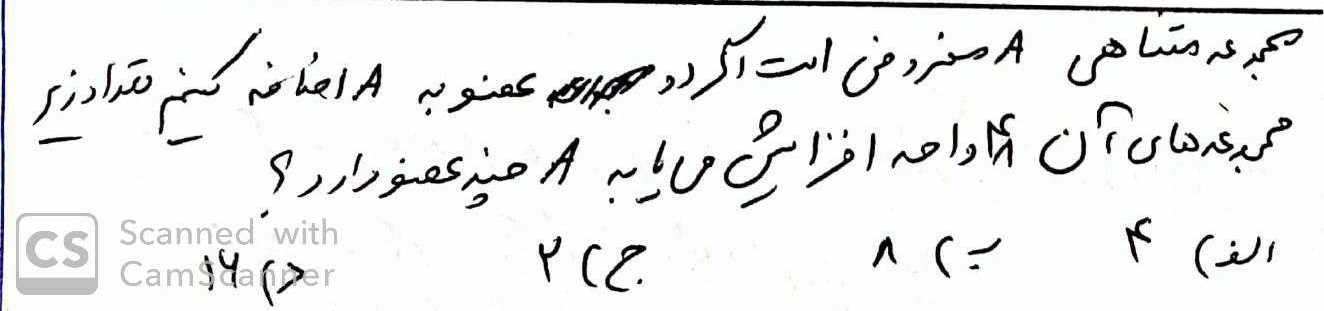 مجموعه متناهی A مفروض است اگر دو عضو به A اضافه کنیم تعداد زیر
مجموعه‌های آن ۴۸ واحد افزایش می‌یابد A چند عضو دارد؟
الف) ۴ ب) ۸ ج) ۲ د) ۱۶
CS Scanned with
CamScanner